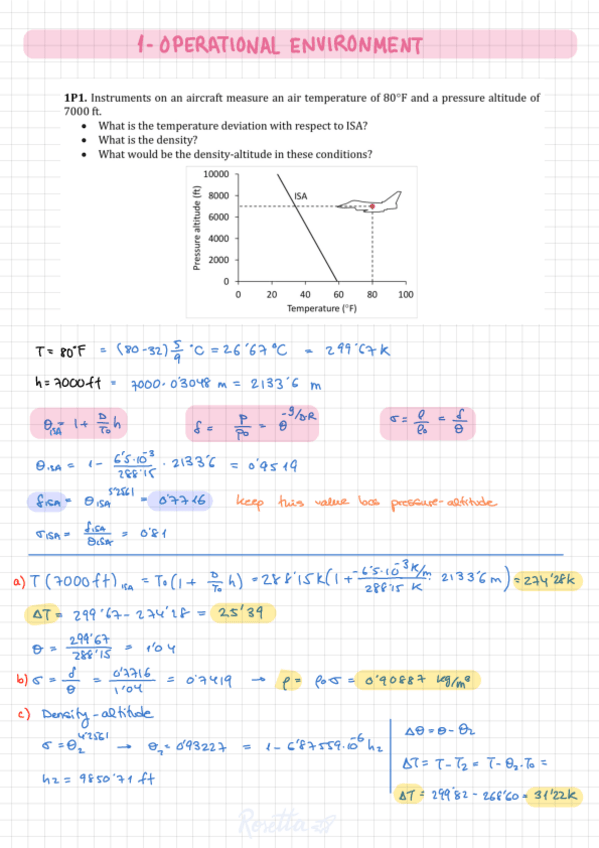 1- OPERATIONAL ENVIRONMENT
1P1. Instruments on an aircraft measure an air temperature of 80°F and a pressure altitude of
7000 ft.
• What is the temperature deviation with respect to ISA?
• What is the density?
• What would be the density-altitude in these conditions?
10000
8000
6000
4000
2000
0
Pressure altitude (ft)
ISA
0 20 40 60 80 100
Temperature (°F)
T = 80°F = (80-32) 5/9 °C = 26'67°C = 299'67 K
h = 7000 ft = 7000·0'3048 m = 2133'6 m
θ_ISA = 1 + D/T₀ h δ = P/P₀ = θ^(-g/DR) σ = ρ/ρ₀ = δ/θ
θ_ISA = 1 - 6'5·10⁻³/288'15 · 2133'6 = 0'9519
δ_ISA = θ_ISA^5'2561 = 0'7716 keep this value bas pressure-altitude
σ_ISA = δ_ISA/θ_ISA = 0'81
a) T(7000 ft)_ISA = T₀(1 + D/T₀ h) = 288'15K(1 + -6'5·10⁻³K/m / 288'15 K · 2133'6 m) = 274'28K
ΔT = 299'67 - 274'28 = 25'39
θ = 299'67/288'15 = 1'04
b) σ = δ/θ = 0'7716/1'04 = 0'7419 → ρ = ρ₀σ = 0'90887 kg/m³
c) Density-altitude
σ = θ₂^4'2561 → θ₂ = 0'93227 = 1 - 6'87559·10⁻⁶ h₂
h₂ = 9850'71 ft
Δθ = θ - θ₂
ΔT = T - T₂ = T - θ₂·T₀ =
ΔT = 299'82 - 268'60 = 31'22K
Rosetta